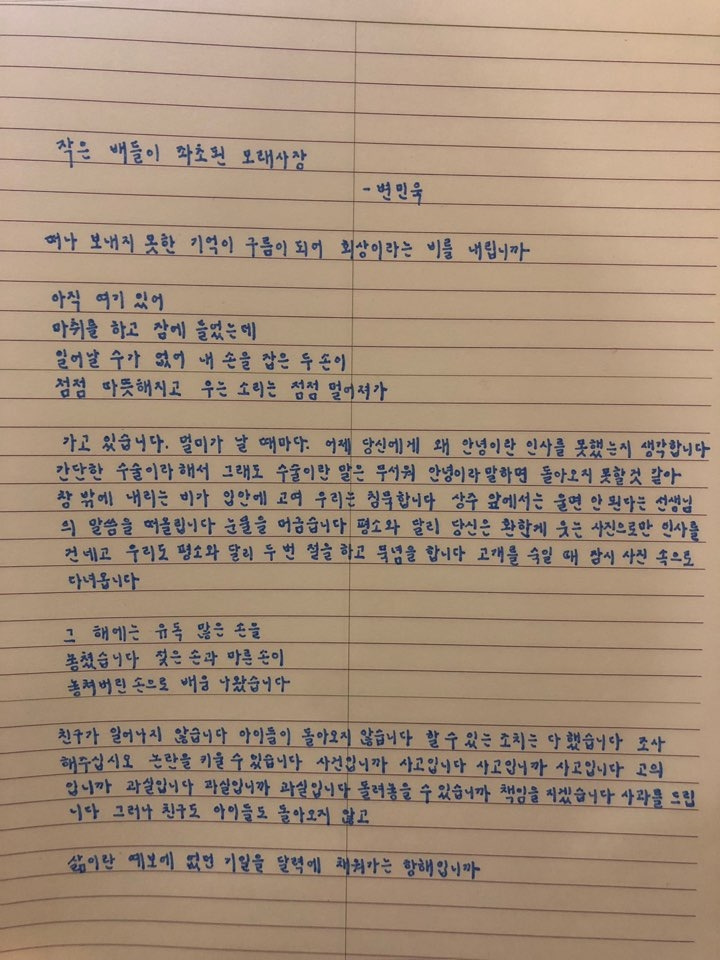 작은 배들이 좌초된 모래사장
- 변민욱
떠나 보내지 못한 기억이 구름이 되어 회상이라는 비를 내립니까
아직 여기 있어
마취를 하고 잠에 들었는데
일어날 수가 없어 내 손을 잡은 두 손이
점점 따뜻해지고 우는 소리는 점점 멀어져가
가고 있습니다. 멀미가 날 때마다. 어제 당신에게 왜 안녕이란 인사를 못했는지 생각합니다
간단한 수술이라 해서 그래도 수술이란 말은 무서워 안녕이라 말하면 돌아오지 못할 것 같아
창 밖에 내리는 비가 입안에 고여 우리는 침묵합니다 상주 앞에서는 울면 안 된다는 선생님
의 말씀을 떠올립니다 눈물을 머금습니다 평소와 달리 당신은 환하게 웃는 사진으로만 인사를
건네고 우리도 평소와 달리 두 번 절을 하고 묵념을 합니다 고개를 숙일 때 잠시 사진 속으로
다녀옵니다
그 해에는 유독 많은 손을
놓쳤습니다 젖은 손과 마른 손이
놓쳐버린 손으로 배웅 나왔습니다
친구가 일어나지 않습니다 아이들이 돌아오지 않습니다 할 수 있는 조치는 다 했습니다 조사
해주십시오 논란을 키울 수 있습니다 사건입니까 사고입니다 사고입니까 사고입니다 고의
입니까 과실입니다 과실입니까 과실입니다 돌려놓을 수 있습니까 책임을 지겠습니다 사과를 드립
니다 그러나 친구도 아이들도 돌아오지 않고
삶이란 예보에 없던 기일을 달력에 채워가는 항해입니까